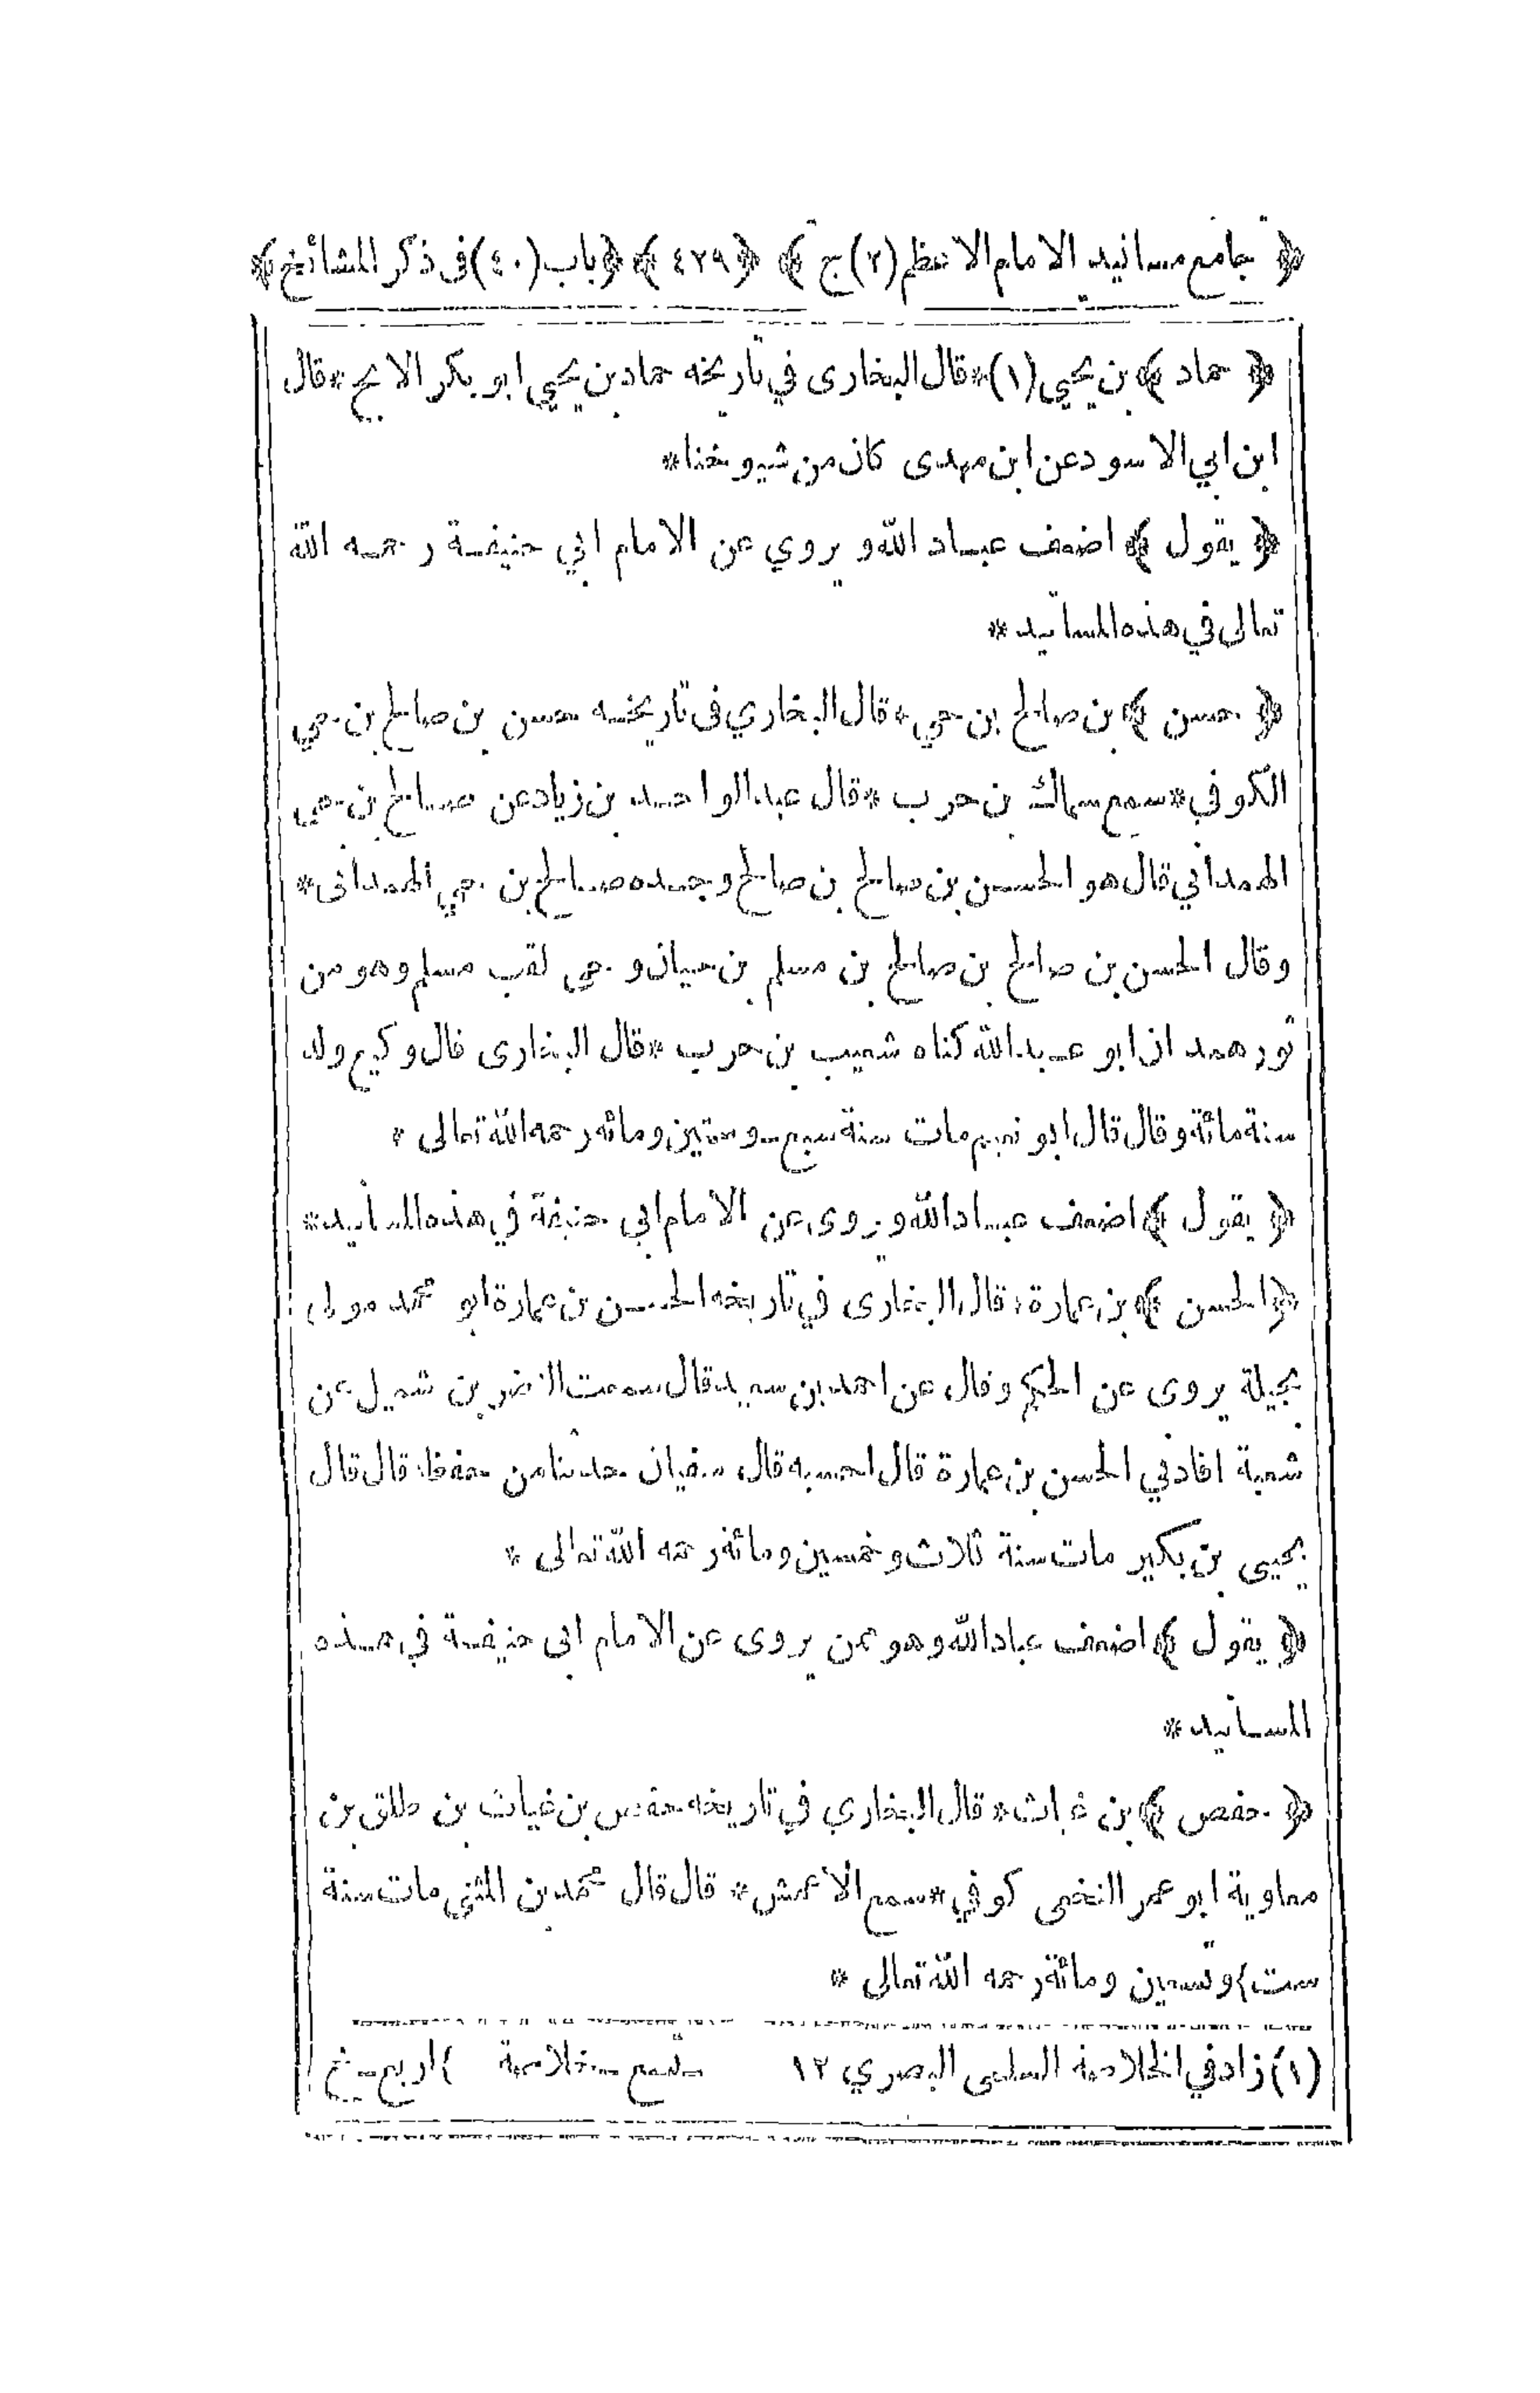 ﴿ جامع مسانيد الامام الاعظم (٢) ج ﴾ ﴿ ٤٢٩ ﴾ ﴿ باب (٤٠) فى ذكر المشائخ ﴾
﴿ حماد ﴾ بن يحيي (١) * قال البخارى في تاريخه حماد بن يحيي ابو بكر الابح * قال
ابن ابي الاسود عن ابن مهدى كان من شيوخنا *
﴿ يقول ﴾ اضعف عباد الله و يروي عن الامام ابي حنيفة رحمه الله
تعالى في هذه المسانيد *
﴿ حسن ﴾ بن صالح بن حي * قال البخاري فى تاريخه حسن بن صالح بن حي
الكوفي * سمع سماك بن حرب * قال عبد الواحد بن زياد عن صالح بن حى
الهمداني قال هو الحسن بن صالح بن صالح وجده صالح بن حي الهمدانى *
وقال الحسن بن صالح بن صالح بن مسلم بن حيان و حى لقب مسلم وهو من
ثور همدان ابو عبد الله كناه شعيب بن حرب * قال البخارى قال وكيع ولد
سنة مائة وقال قال ابو نعيم مات سنة سبع وستين ومائه رحمه الله تعالى *
﴿ يقول ﴾ اضعف عباد الله و يروى عن الامام ابي حنيفة في هذه المسانيد *
﴿ الحسن ﴾ بن عمارة * قال البخارى في تاريخه الحسن بن عمارة ابو محمد مولى
بجيلة يروى عن الحكم وقال عن احمد بن سعيد قال سمعت النضر بن شميل عن
شعبة افادني الحسن بن عمارة قال احسبه قال سفيان حدثنا من حفظه قال قال
يحيى بن بكير مات سنة ثلاث وخمسين ومائه رحمه الله تعالى *
﴿ يقول ﴾ اضعف عباد الله وهو ممن يروى عن الامام ابى حنيفة في هذه
المسانيد *
﴿ حفص ﴾ بن غياث * قال البخاري في تاريخه حفص بن غياث بن طلق بن
معاوية ابو عمر النخعى كوفي * سمع الاعمش * قال قال محمد بن المثنى مات سنة
ست) وتسعين ومائة رحمه الله تعالى *
(١) زاد في الخلاصة السلمى البصري ١٢ تسع ـ خلاصة ) اربع ـ خ